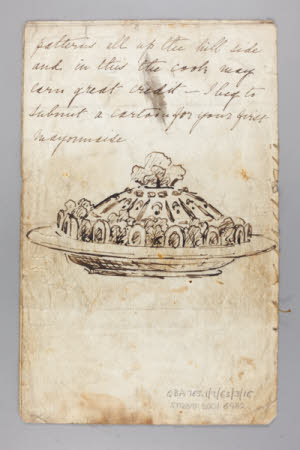 patterns all up the hill side
and in this the cook may
earn great credit – I beg to
submit a cartoon for your first
mayonnaise